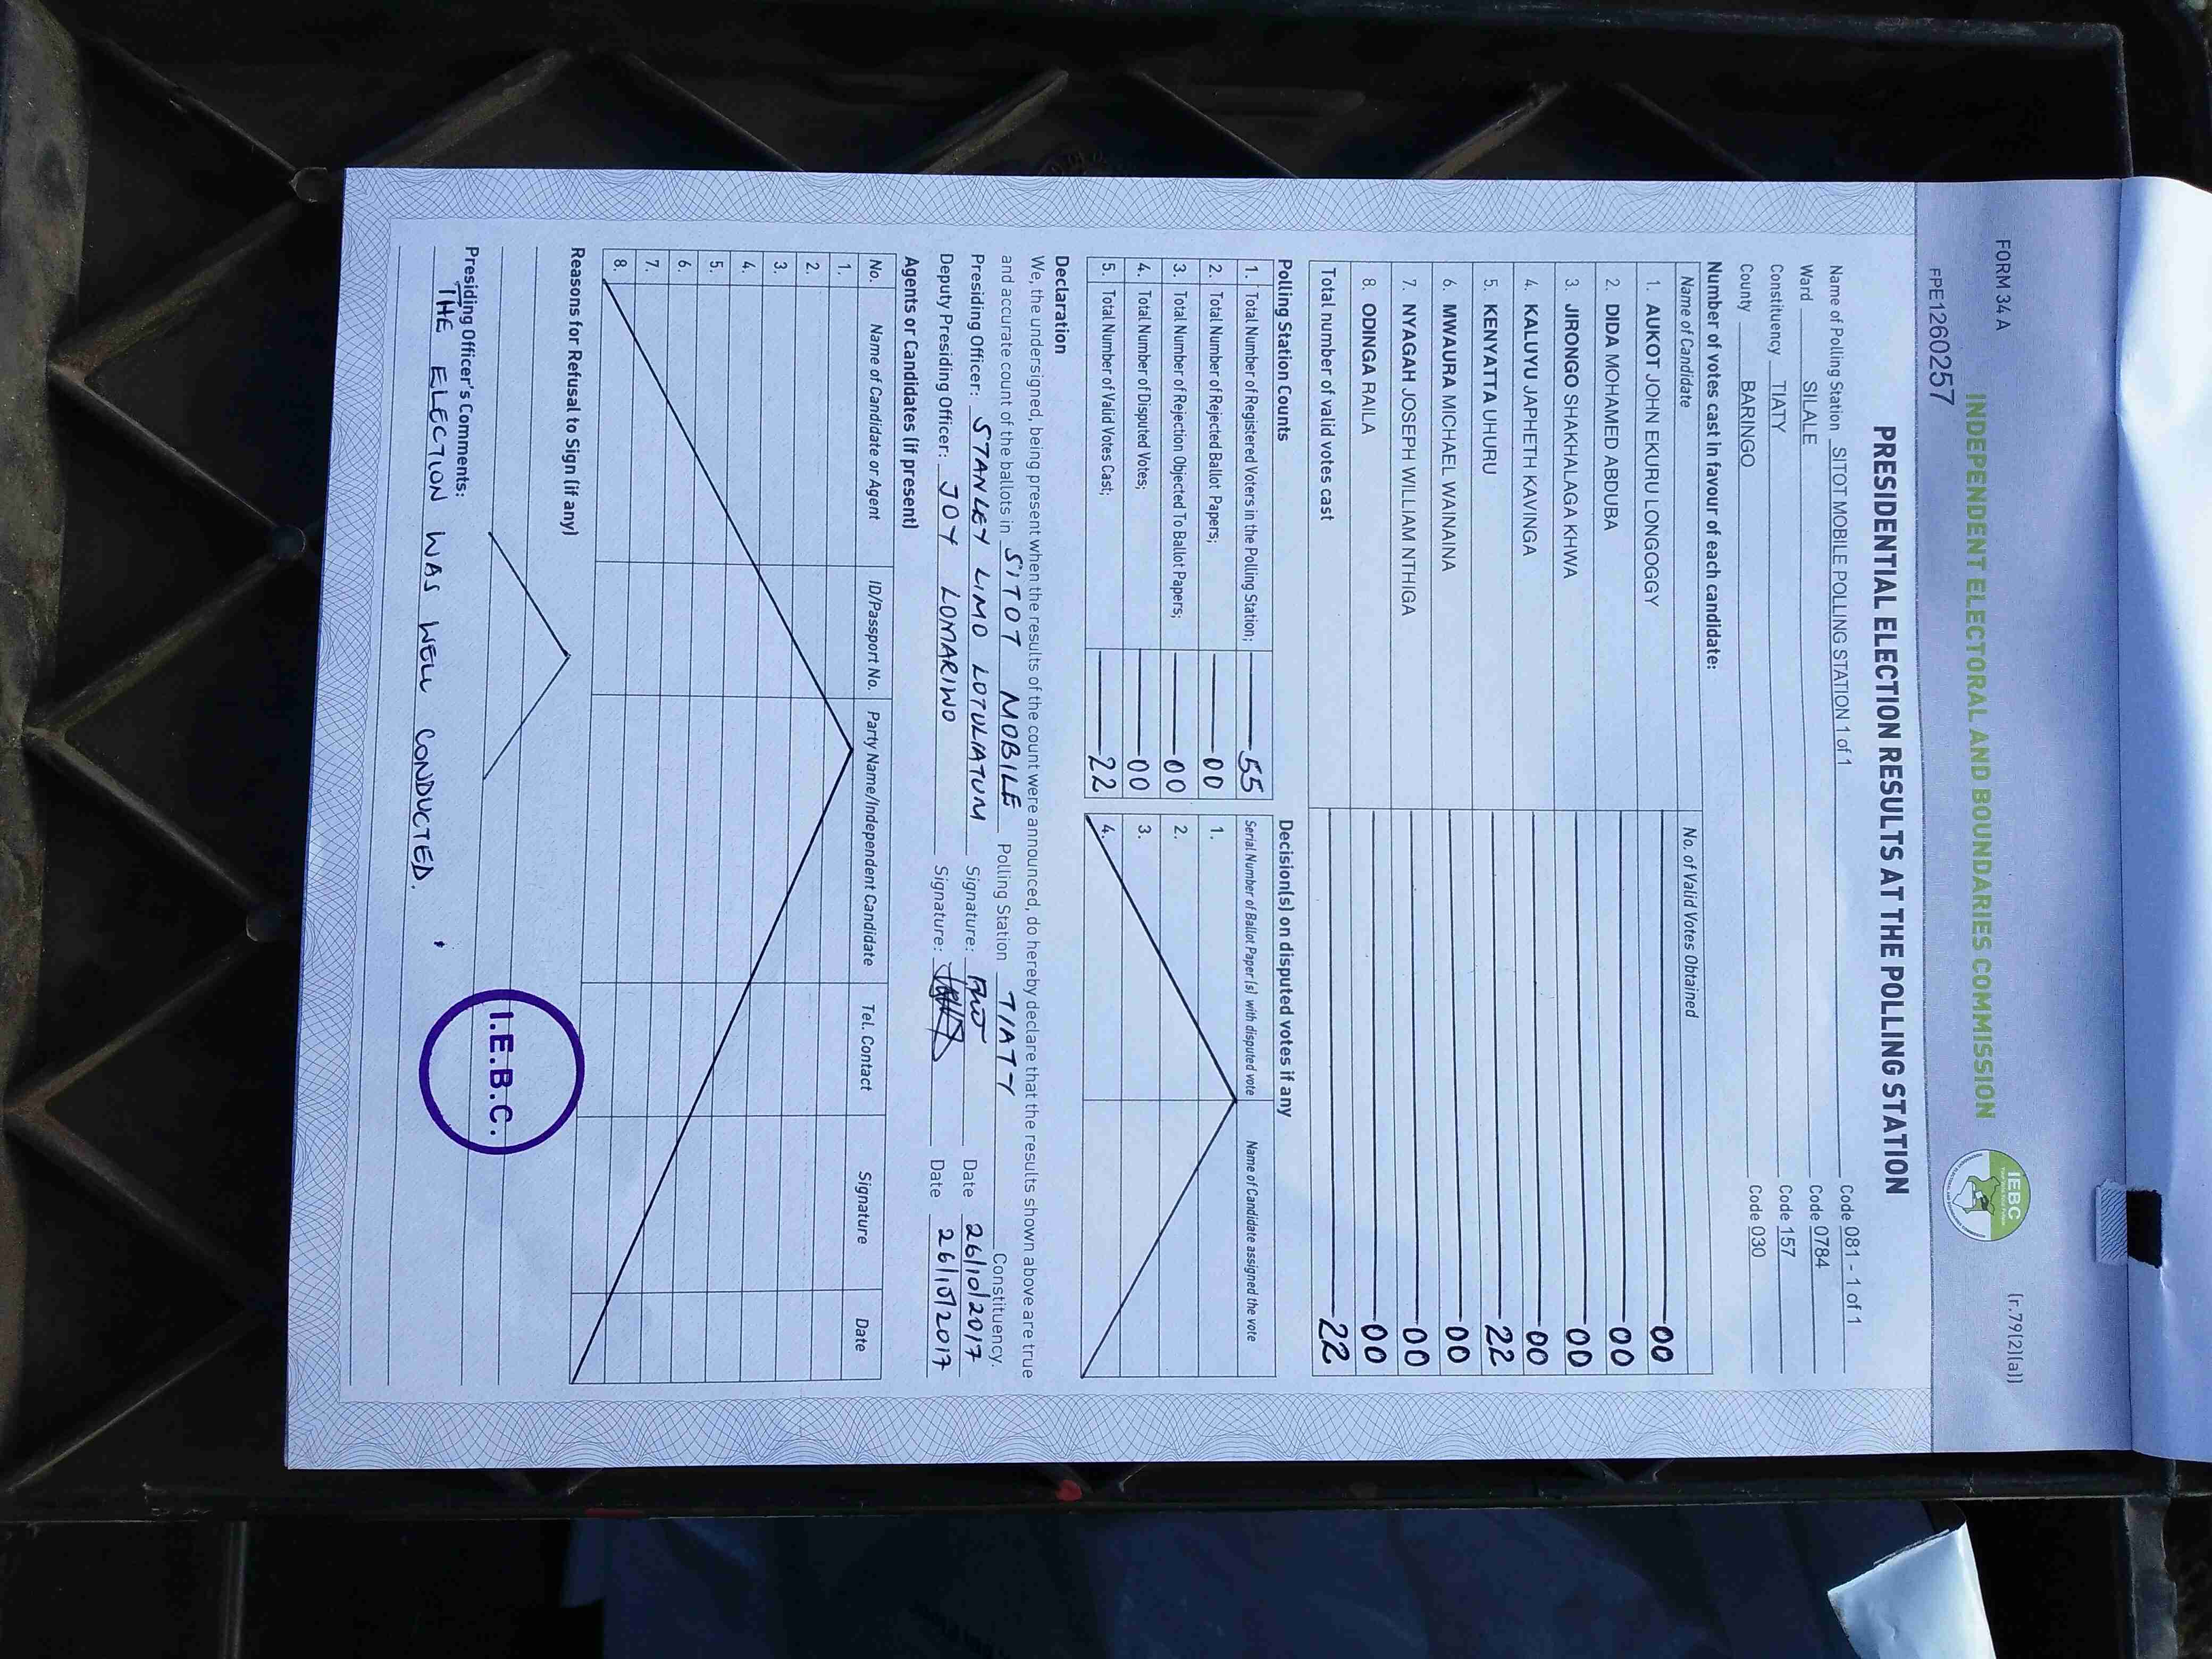 FORM 34 A
(r.79(2)(a))
INDEPENDENT ELECTORAL AND BOUNDARIES COMMISSION
IEBC
FPE1260257
PRESIDENTIAL ELECTION RESULTS AT THE POLLING STATION
Name of Polling Station SITOT MOBILE POLLING STATION 1 of 1 Code 081 - 1 of 1
Ward SILALE Code 0784
Constituency TIATY Code 157
County BARINGO Code 030
Number of votes cast in favour of each candidate:
Name of Candidate No. of Valid Votes Obtained
1. AUKOT JOHN EKURU LONGOGGY 00
2. DIDA MOHAMED ABDUBA 00
3. JIRONGO SHAKHALAGA KHWA 00
4. KALUYU JAPHETH KAVINGA 00
5. KENYATTA UHURU 22
6. MWAURA MICHAEL WAINAINA 00
7. NYAGAH JOSEPH WILLIAM NTHIGA 00
8. ODINGA RAILA 00
Total number of valid votes cast 22
Polling Station Counts
1. Total Number of Registered Voters in the Polling Station; 55
2. Total Number of Rejected Ballot Papers; 00
3. Total Number of Rejection Objected To Ballot Papers; 00
4. Total Number of Disputed Votes; 00
5. Total Number of Valid Votes Cast; 22
Decision(s) on disputed votes if any
Serial Number of Ballot Paper(s) with disputed vote Name of Candidate assigned the vote
1.
2.
3.
4.
Declaration
We, the undersigned, being present when the results of the count were announced, do hereby declare that the results shown above are true
and accurate count of the ballots in SITOT MOBILE Polling Station TIATY Constituency.
Presiding Officer: STANLEY LIMO LOTULIATUM Signature: Date 26/10/2017
Deputy Presiding Officer: JOY LOMARINO Signature: Date 26/10/2017
Agents or Candidates (if present)
No. Name of Candidate or Agent ID/Passport No. Party Name/Independent Candidate Tel. Contact Signature Date
1.
2.
3.
4.
5.
6.
7.
8.
Reasons for Refusal to Sign (if any)
Presiding Officer's Comments:
THE ELECTION WAS WELL CONDUCTED.
I.E.B.C.